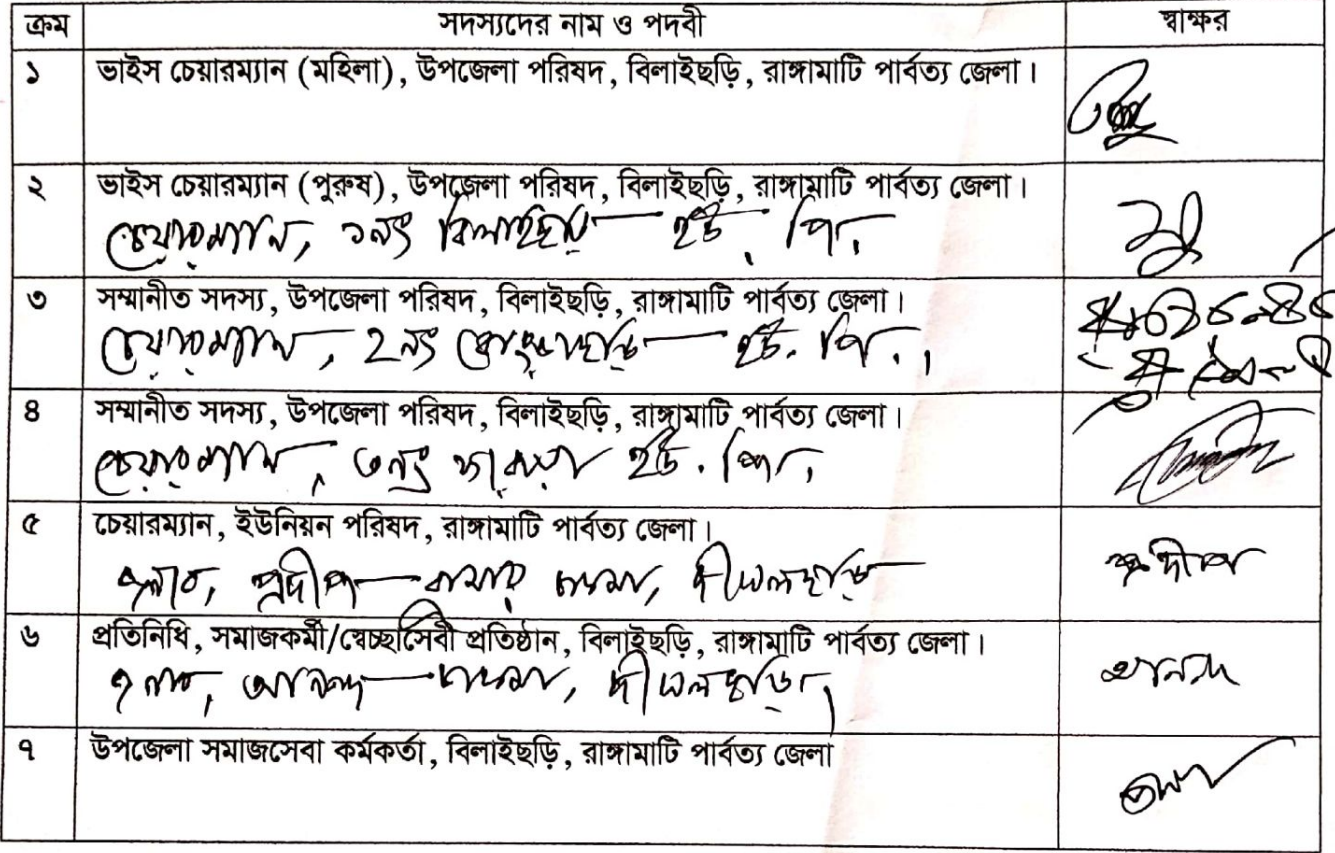 ক্রম সদস্যদের নাম ও পদবী স্বাক্ষর
১ ভাইস চেয়ারম্যান (মহিলা), উপজেলা পরিষদ, বিলাইছড়ি, রাঙ্গামাটি পার্বত্য জেলা।
২ ভাইস চেয়ারম্যান (পুরুষ), উপজেলা পরিষদ, বিলাইছড়ি, রাঙ্গামাটি পার্বত্য জেলা।
চেয়ারম্যান, ১নং বিলাইছড়ি ইউ. পি.
৩ সম্মানীত সদস্য, উপজেলা পরিষদ, বিলাইছড়ি, রাঙ্গামাটি পার্বত্য জেলা।
চেয়ারম্যান, ২নং কেংড়াছড়ি ইউ. পি.
৪ সম্মানীত সদস্য, উপজেলা পরিষদ, বিলাইছড়ি, রাঙ্গামাটি পার্বত্য জেলা।
চেয়ারম্যান, ৩নং ফারুয়া ইউ. পি.
৫ চেয়ারম্যান, ইউনিয়ন পরিষদ, রাঙ্গামাটি পার্বত্য জেলা।
জনাব, প্রদীপ কুমার চাকমা, দীঘলছড়ি প্রদীপ
৬ প্রতিনিধি, সমাজকর্মী/স্বেচ্ছাসেবী প্রতিষ্ঠান, বিলাইছড়ি, রাঙ্গামাটি পার্বত্য জেলা।
জনাব, আনন্দ চাকমা, দীঘলছড়ি। আনন্দ
৭ উপজেলা সমাজসেবা কর্মকর্তা, বিলাইছড়ি, রাঙ্গামাটি পার্বত্য জেলা